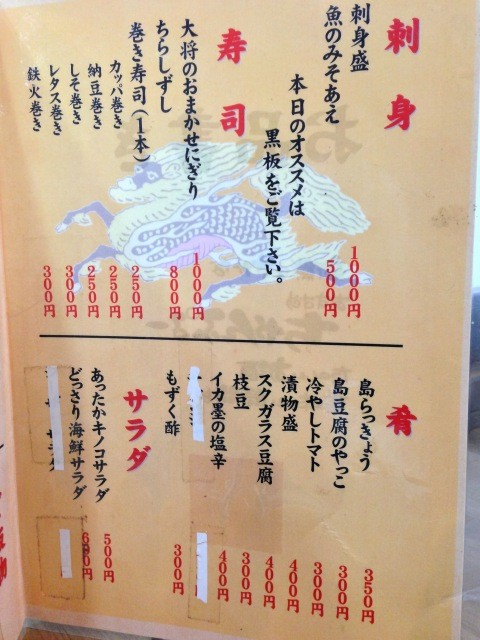 刺身
刺身盛 1000円
魚のみそあえ 500円
本日のオススメは
黒板をご覧下さい。
寿司
大将のおまかせにぎり 1000円
ちらしずし 800円
巻き寿司(1本)
カッパ巻き 250円
納豆巻き 250円
しそ巻き 250円
レタス巻き 300円
鉄火巻き 300円
肴
島らっきょう 350円
島豆腐のやっこ 300円
冷やしトマト 300円
漬物盛 400円
スクガラス豆腐 400円
枝豆 300円
イカ墨の塩辛 400円
もずく酢 300円
サラダ
あったかキノコサラダ 500円
どっさり海鮮サラダ